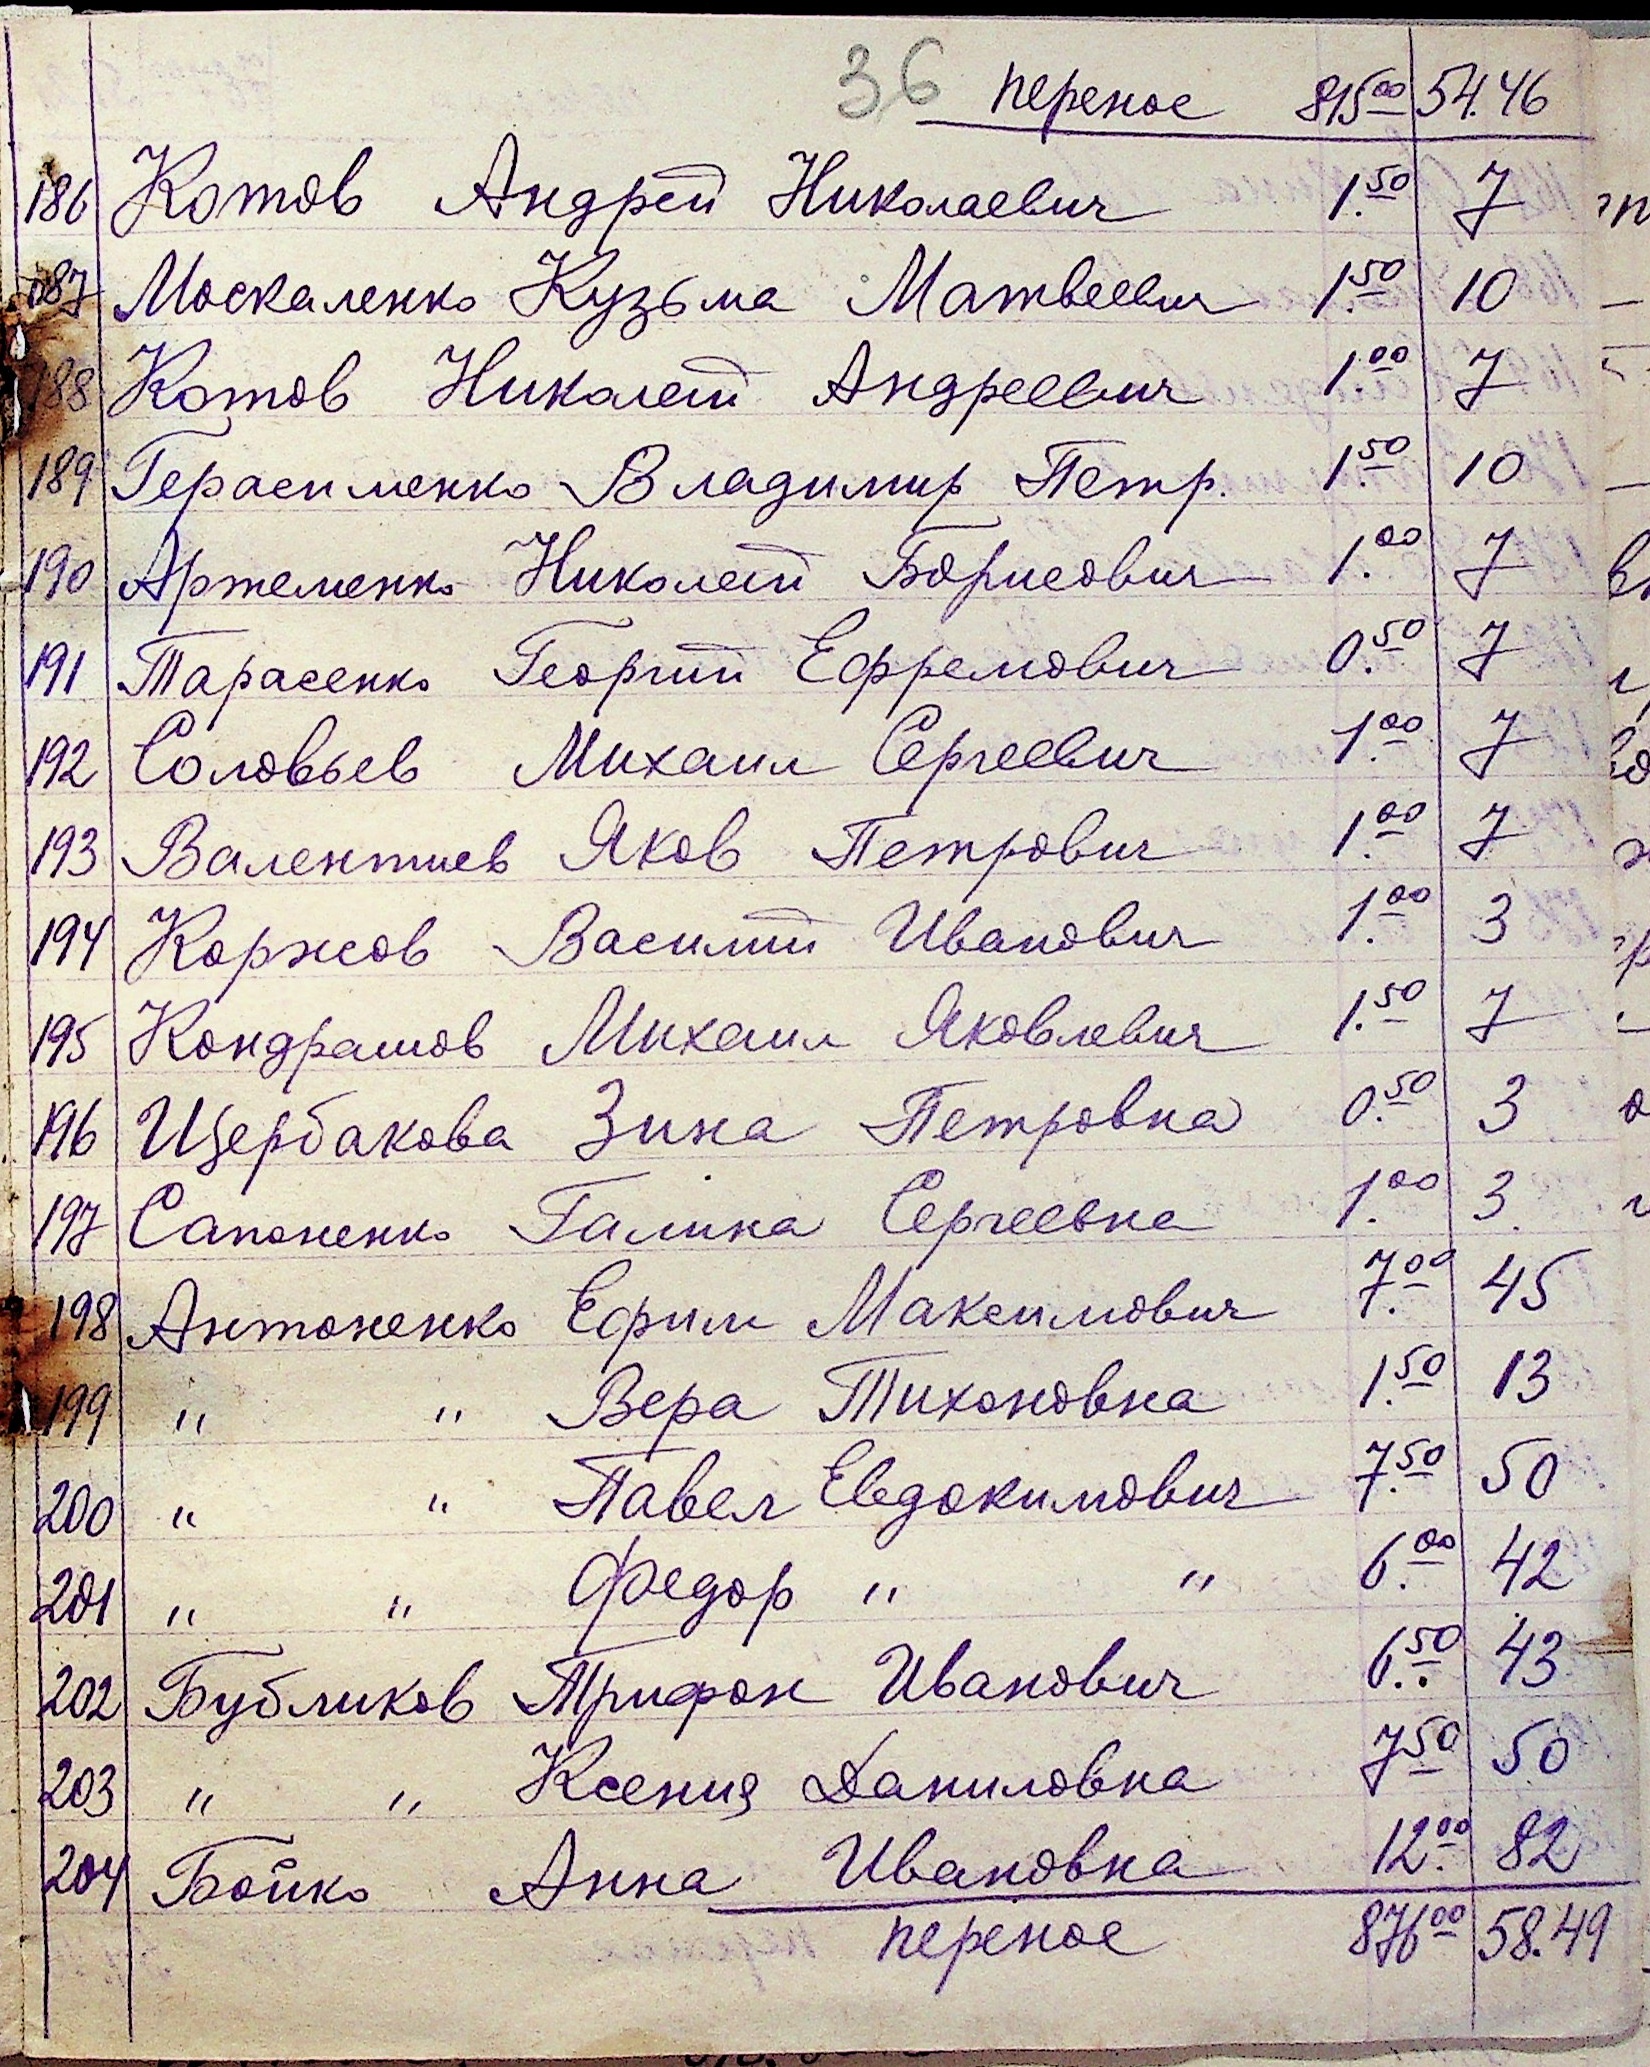 36 перенос 815 00 54.46
186 Котов Андрей Николаевич 1.50 7
187 Москаленко Кузьма Матвеевич 1.50 10
188 Котов Николай Андреевич 1.00 7
189 Герасименко Владимир Петр. 1.50 10
190 Артеменко Николай Борисович 1.00 7
191 Тарасенко Георгий Ефремович 0.50 7
192 Соловьев Михаил Сергеевич 1.00 7
193 Валентиев Яков Петрович 1.00 7
194 Коржов Василий Иванович 1.00 3
195 Кондрашов Михаил Яковлевич 1.50 7
196 Щербакова Зина Петровна 0.50 3
197 Сапоненко Галина Сергеевна 1.00 3.
198 Антоненко Ефим Максимович 7.00 45
199 " " Вера Тихоновна 1.50 13
200 " " Павел Евдокимович 7.50 50
201 " " Федор " " 6.00 42
202 Бубликов Трифон Иванович 6.50 43
203 " " Ксения Даниловна 7 50 50
204 Бойко Анна Ивановна 12.00 82
перенос 876 00 58.49